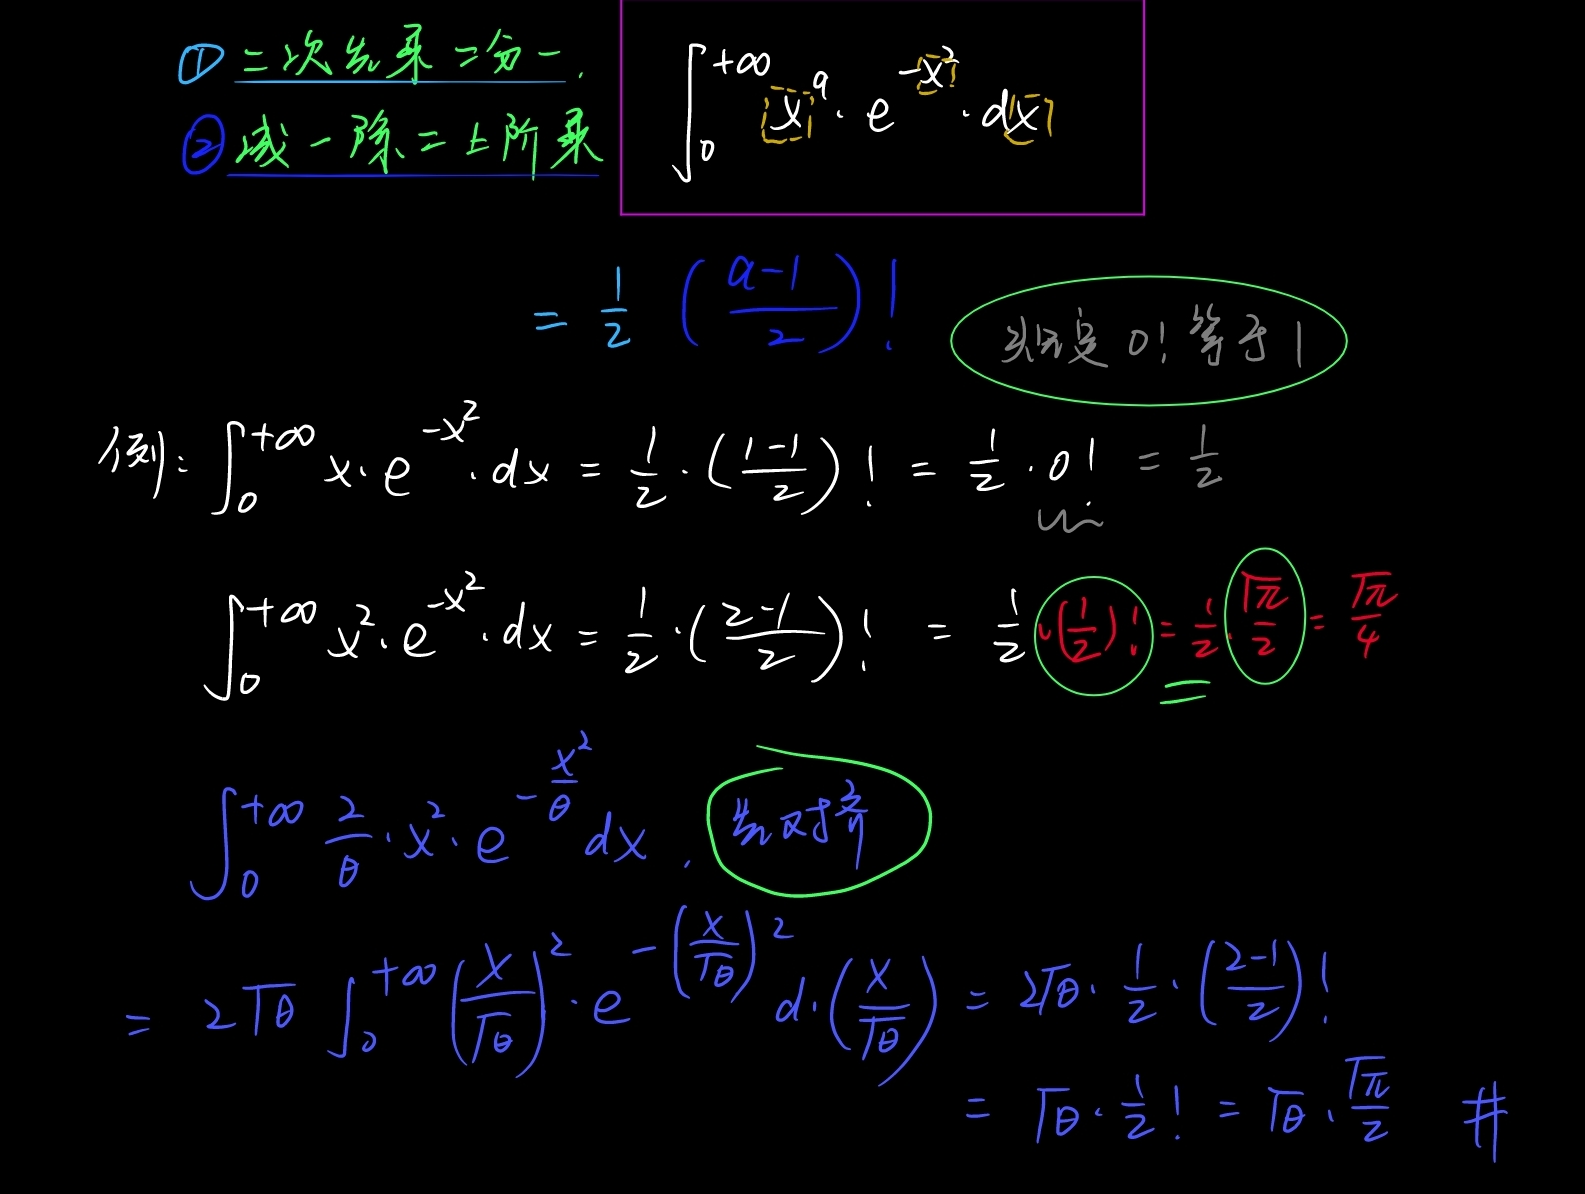 ① 二次先乘二分一.
② 减一除二上阶乘
∫₀^{+∞} x^a · e^{-x²} · dx
= 1/2 ((a-1)/2)!
规定 0! 等于 1
例: ∫₀^{+∞} x · e^{-x²} · dx = 1/2 · ((1-1)/2)! = 1/2 · 0! = 1/2
∫₀^{+∞} x² · e^{-x²} · dx = 1/2 · ((2-1)/2)! = 1/2 · (1/2)! = 1/2 · √π/2 = √π/4
∫₀^{+∞} 2/θ · x² · e^{-x²/θ} dx . 先对齐
= 2√θ ∫₀^{+∞} (x/√θ)² · e^{-(x/√θ)²} d · (x/√θ) = 2√θ · 1/2 · ((2-1)/2)!
= √θ · 1/2 ! = √θ · √π/2 #